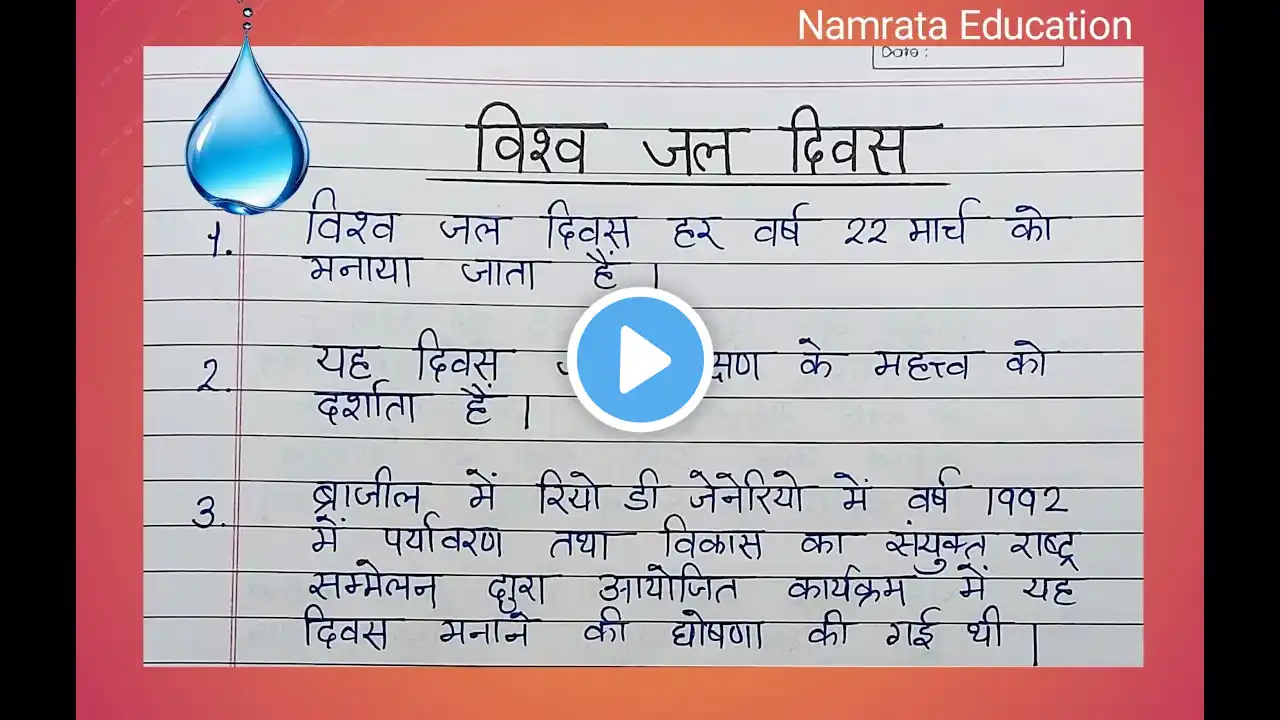 Namrata Education
Date:
विश्व जल दिवस
1. विश्व जल दिवस हर वर्ष 22 मार्च को
मनाया जाता हैं ।
2. यह दिवस के महत्त्व को
दर्शाता हैं ।
3. ब्राजील में रियो डी जेनेरियो में वर्ष 1992
में पर्यावरण तथा विकास का संयुक्त राष्ट्र
सम्मेलन द्वारा आयोजित कार्यक्रम में यह
दिवस मनाने की घोषणा की गई थी ।